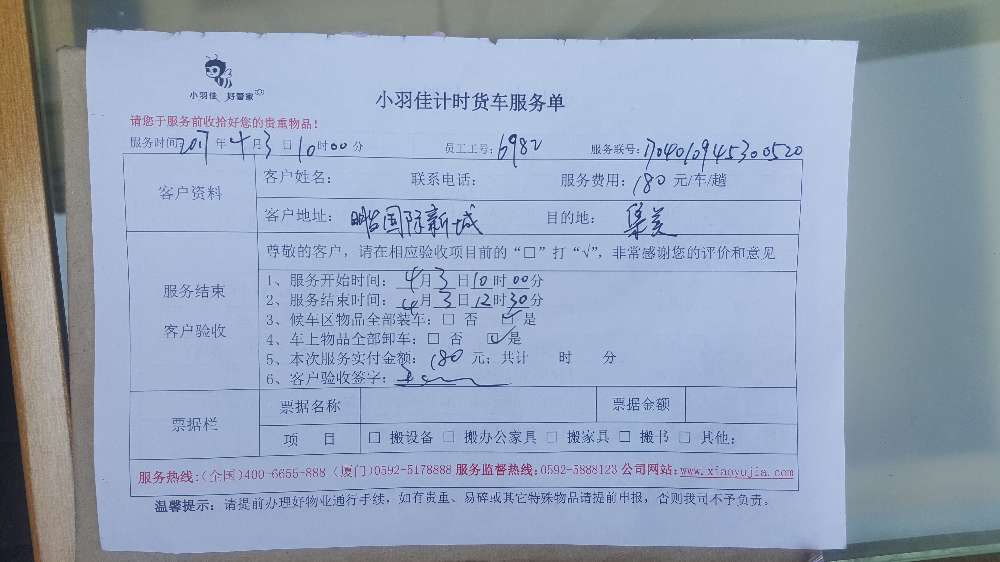 小羽佳 好管家
小羽佳计时货车服务单
请您于服务前收拾好您的贵重物品！
服务时间：2017年4月3日10时00分 员工工号：6982 服务联号：1704010945300520
客户资料
客户姓名： 联系电话： 服务费用：180元/车/趟
客户地址： 国际新城 目的地：集美
服务结束
客户验收
尊敬的客户，请在相应验收项目前的“□”打“√”，非常感谢您的评价和意见
1、服务开始时间：4月3日10时00分
2、服务结束时间：4月3日12时30分
3、候车区物品全部装车：□ 否 ☑ 是
4、车上物品全部卸车：□ 否 ☑ 是
5、本次服务实付金额：180元；共计 时 分
6、客户验收签字：
票据栏
票据名称 票据金额
项 目 □ 搬设备 □ 搬办公家具 □ 搬家具 □ 搬书 □ 其他：
服务热线：(全国)400-6655-888 (厦门)0592-5178888 服务监督热线：0592-5888123 公司网站：www.xiaoyujia.com
温馨提示：请提前办理好物业通行手续，如有贵重、易碎或其它特殊物品请提前申报，否则我司不予负责。